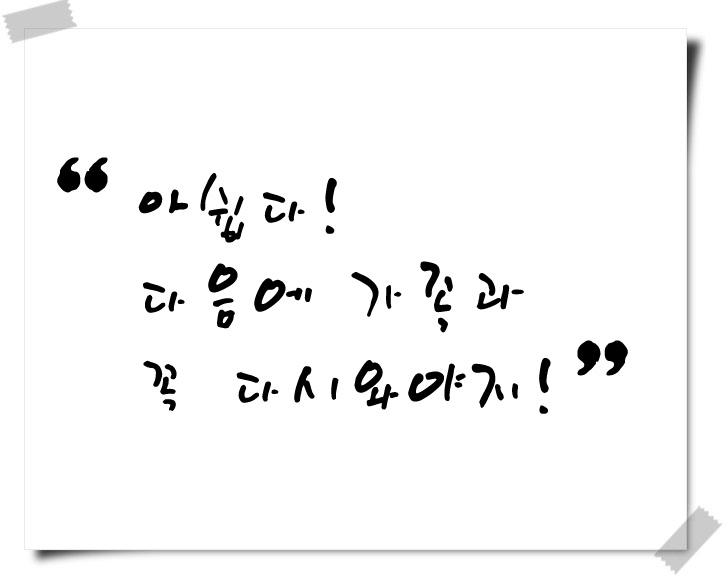 “아쉽다!
다음에 가족과
꼭 다시와야지!”